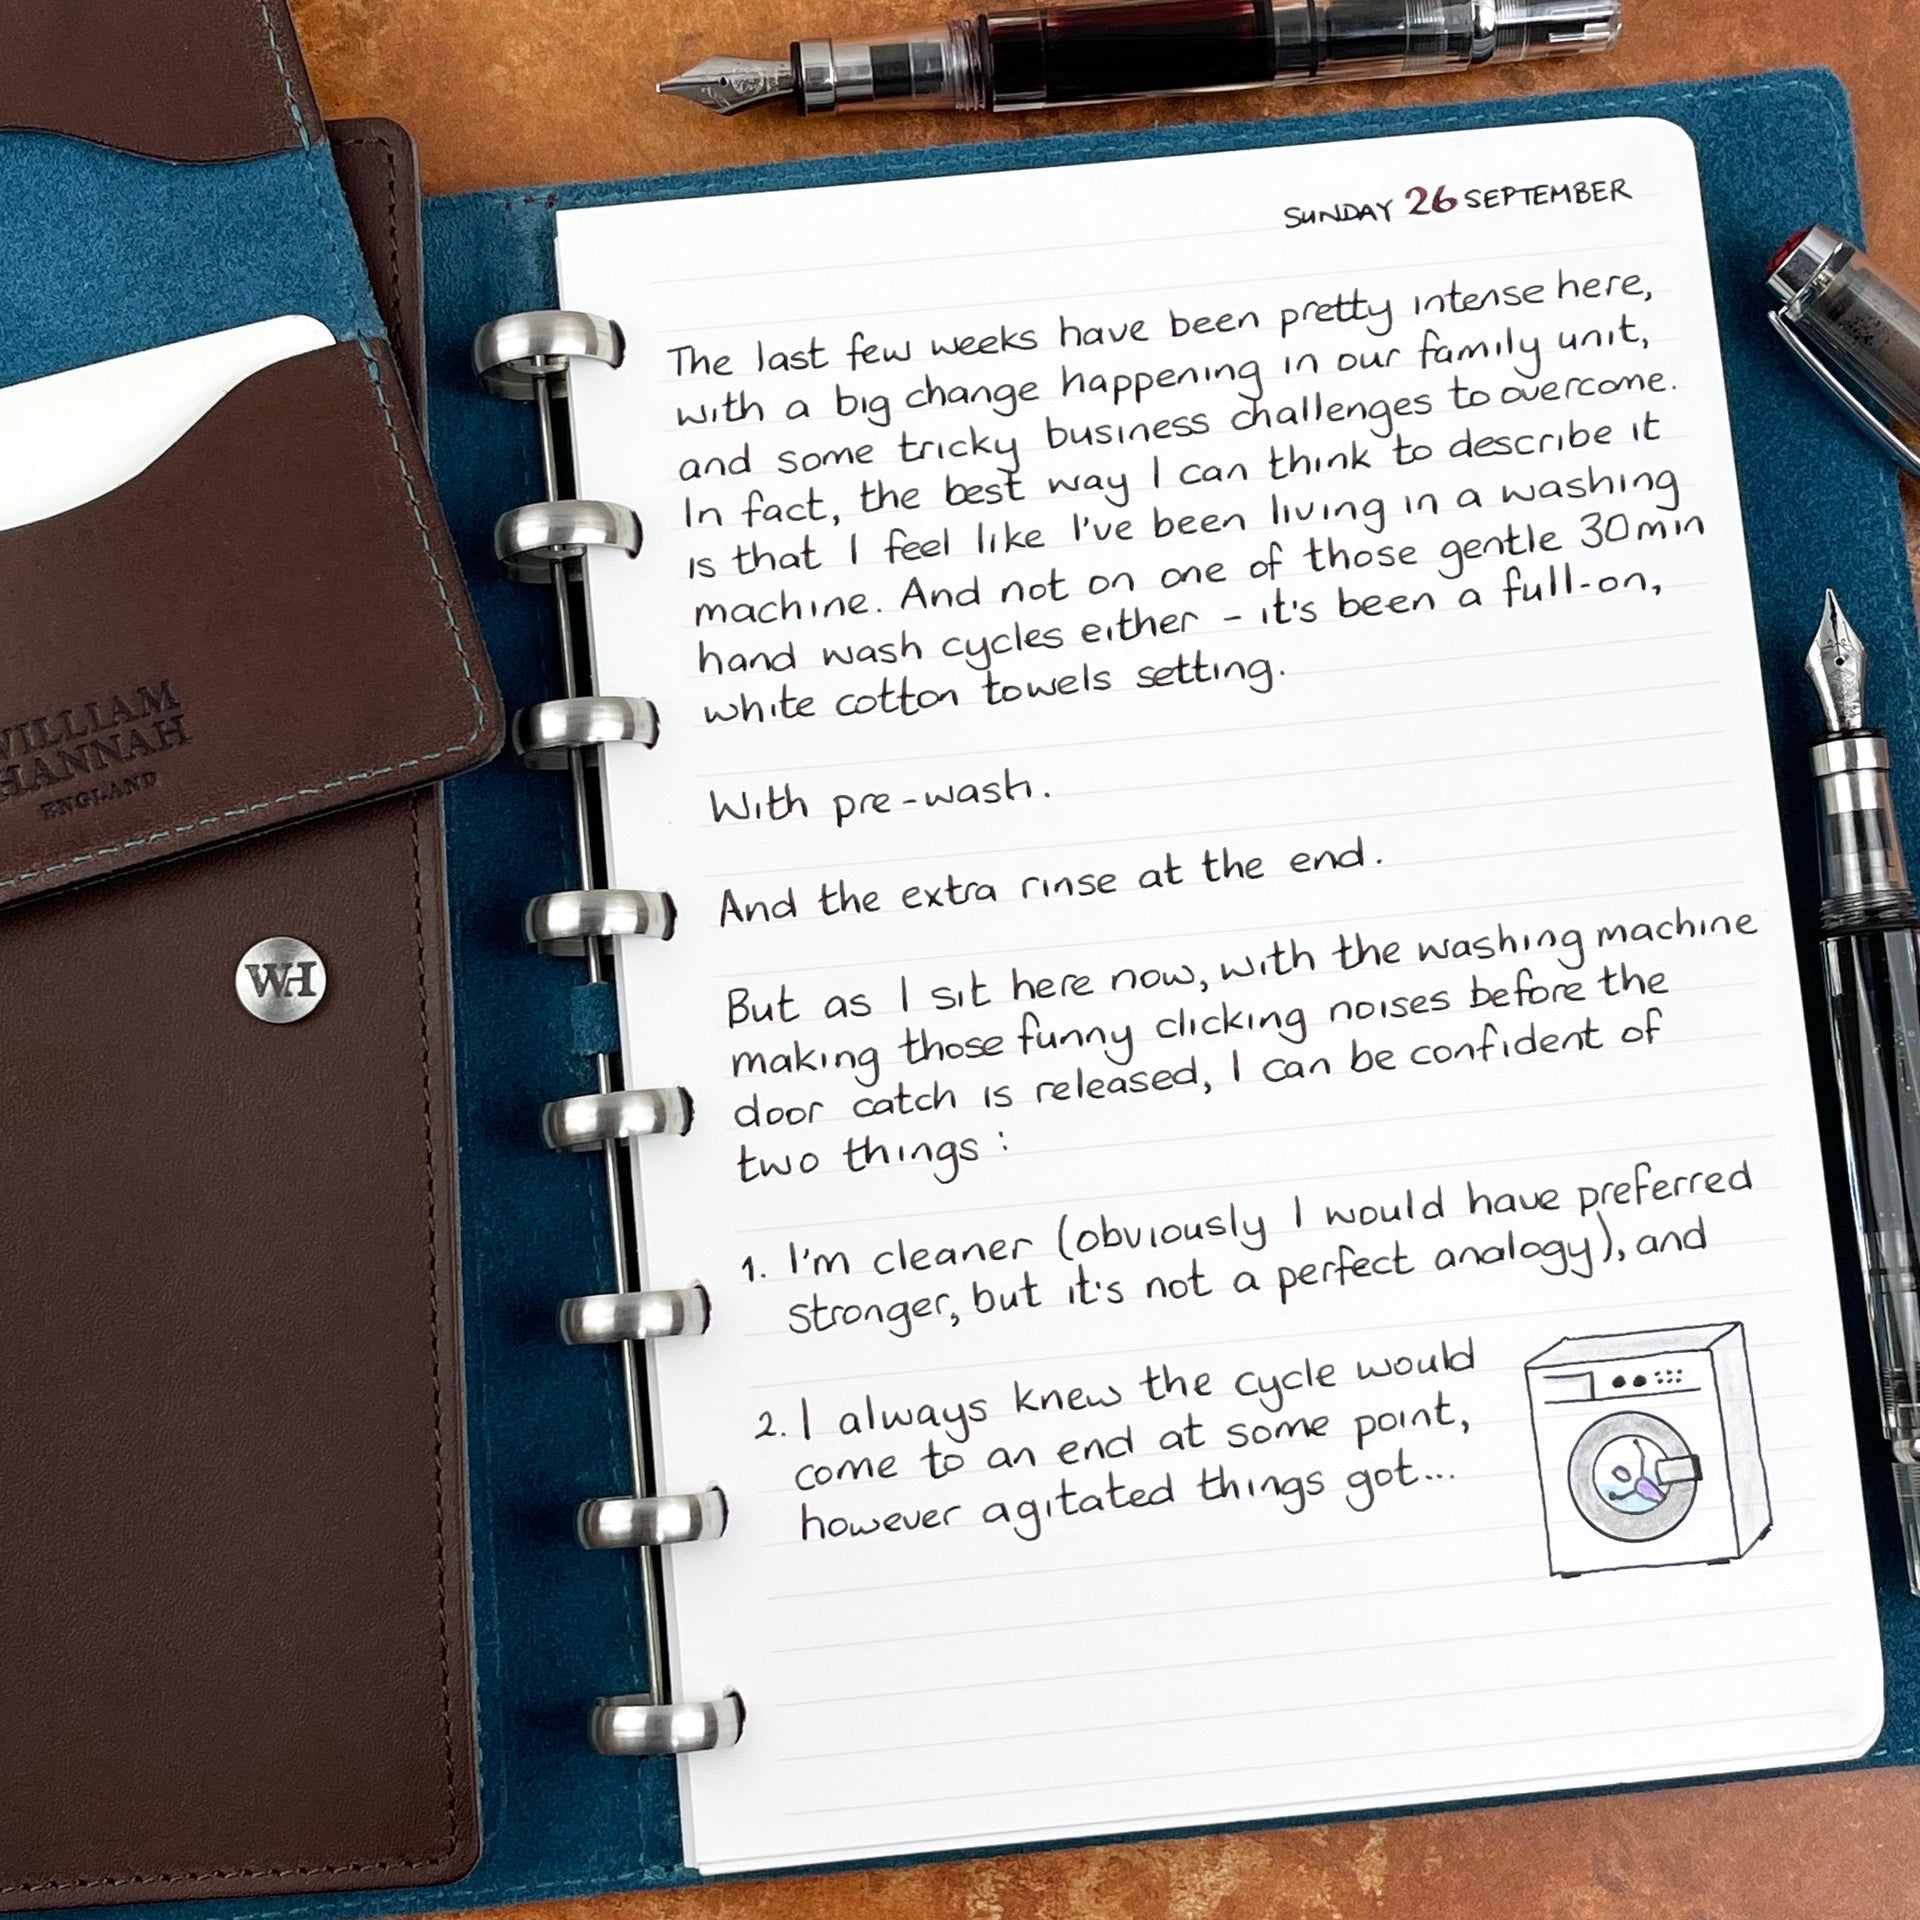 SUNDAY 26 SEPTEMBER
The last few weeks have been pretty intense here,
with a big change happening in our family unit,
and some tricky business challenges to overcome.
In fact, the best way I can think to describe it
is that I feel like I've been living in a washing
machine. And not on one of those gentle 30min
hand wash cycles either - it's been a full-on,
white cotton towels setting.
With pre-wash.
And the extra rinse at the end.
But as I sit here now, with the washing machine
making those funny clicking noises before the
door catch is released, I can be confident of
two things:
1. I'm cleaner (obviously I would have preferred
stronger, but it's not a perfect analogy), and
2. I always knew the cycle would
come to an end at some point,
however agitated things got...
WILLIAM
HANNAH
ENGLAND
WH